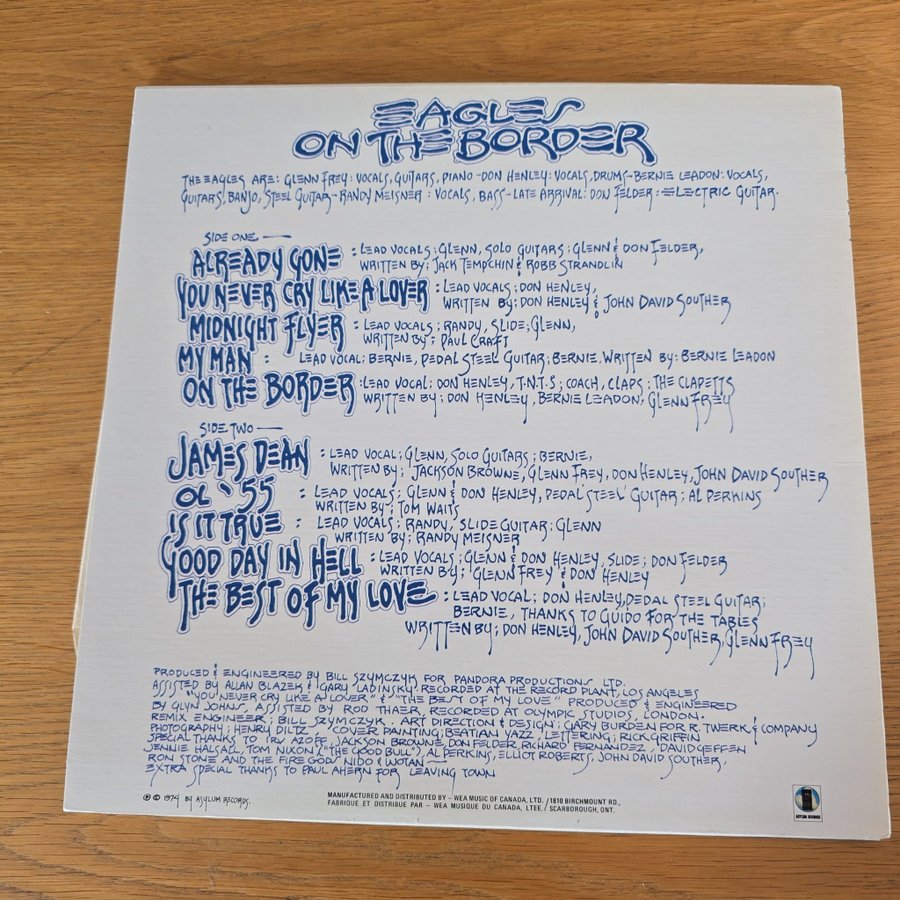 EAGLES
ON THE BORDER
THE EAGLES ARE: GLENN FREY: VOCALS, GUITARS, PIANO-DON HENLEY: VOCALS, DRUMS-BERNIE LEADON: VOCALS,
GUITARS, BANJO, STEEL GUITAR-RANDY MEISNER: VOCALS, BASS-LATE ARRIVAL: DON FELDER: ELECTRIC GUITAR.
SIDE ONE —
ALREADY GONE : LEAD VOCALS; GLENN, SOLO GUITARS; GLENN & DON FELDER,
WRITTEN BY; JACK TEMPCHIN & ROBB STRANDLIN
YOU NEVER CRY LIKE A LOVER : LEAD VOCALS; DON HENLEY,
WRITTEN BY; DON HENLEY & JOHN DAVID SOUTHER
MIDNIGHT FLYER : LEAD VOCALS; RANDY, SLIDE; GLENN,
WRITTEN BY; PAUL CRAFT
MY MAN : LEAD VOCAL; BERNIE, PEDAL STEEL GUITAR; BERNIE, WRITTEN BY: BERNIE LEADON
ON THE BORDER : LEAD VOCAL; DON HENLEY, T.N.T.S; COACH, CLAPS: THE CLAPETTS
WRITTEN BY; DON HENLEY, BERNIE LEADON, GLENN FREY
SIDE TWO —
JAMES DEAN : LEAD VOCAL; GLENN, SOLO GUITARS; BERNIE,
WRITTEN BY; JACKSON BROWNE, GLENN FREY, DON HENLEY, JOHN DAVID SOUTHER
OL' 55 : LEAD VOCALS; GLENN & DON HENLEY, PEDAL STEEL GUITAR; AL PERKINS
WRITTEN BY; TOM WAITS
IS IT TRUE : LEAD VOCALS; RANDY, SLIDE GUITAR: GLENN
WRITTEN BY; RANDY MEISNER
GOOD DAY IN HELL : LEAD VOCALS; GLENN & DON HENLEY, SLIDE; DON FELDER
WRITTEN BY; GLENN FREY & DON HENLEY
THE BEST OF MY LOVE : LEAD VOCAL; DON HENLEY, PEDAL STEEL GUITAR;
BERNIE, THANKS TO GUIDO FOR THE TABLES
WRITTEN BY; DON HENLEY, JOHN DAVID SOUTHER, GLENN FREY
PRODUCED & ENGINEERED BY BILL SZYMCZYK FOR PANDORA PRODUCTIONS LTD.
ASSISTED BY ALLAN BLAZEK & GARY LADINSKY. RECORDED AT THE RECORD PLANT, LOS ANGELES
"YOU NEVER CRY LIKE A LOVER" & "THE BEST OF MY LOVE" PRODUCED & ENGINEERED
BY GLYN JOHNS, ASSISTED BY ROD THAER, RECORDED AT OLYMPIC STUDIOS. LONDON.
REMIX ENGINEER; BILL SZYMCZYK. ART DIRECTION & DESIGN; GARY BURDEN FOR R. TWERK & COMPANY
PHOTOGRAPHY; HENRY DILTZ COVER PAINTING; BEATIAN YAZZ, LETTERING; RICK GRIFFIN
SPECIAL THANKS TO IRV AZOFF, JACKSON BROWNE, DON FELDER, RICHARD FERNANDEZ, DAVID GEFFEN
JENNIE HALSALL, TOM NIXON ("THE GOOD BULL"), AL PERKINS, ELLIOT ROBERTS, JOHN DAVID SOUTHER,
RON STONE AND THE FIRE GODS NIDO & WOTAN —
EXTRA SPECIAL THANKS TO PAUL AHERN FOR LEAVING TOWN
℗ © 1974 BY ASYLUM RECORDS.
MANUFACTURED AND DISTRIBUTED BY – WEA MUSIC OF CANADA, LTD. / 1810 BIRCHMOUNT RD.,
FABRIQUE ET DISTRIBUE PAR – WEA MUSIQUE DU CANADA, LTEE. / SCARBOROUGH, ONT.
ASYLUM RECORDS